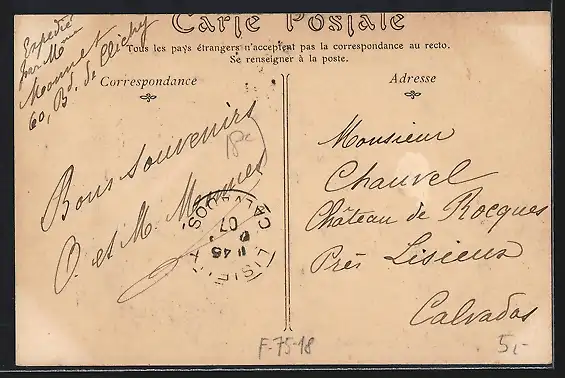 Carte Postale
Tous les pays étrangers n'acceptent pas la correspondance au recto.
Se renseigner à la poste.
Correspondance
Adresse
Expedié
par Mme
60, Bd. de Clichy
Bons souvenirs
O. et M.
18c
LISIEUX
CALVADOS
07
Monsieur
Chauvel
Château de Rocques
Près Lisieux
Calvados
F-75-18
5,-